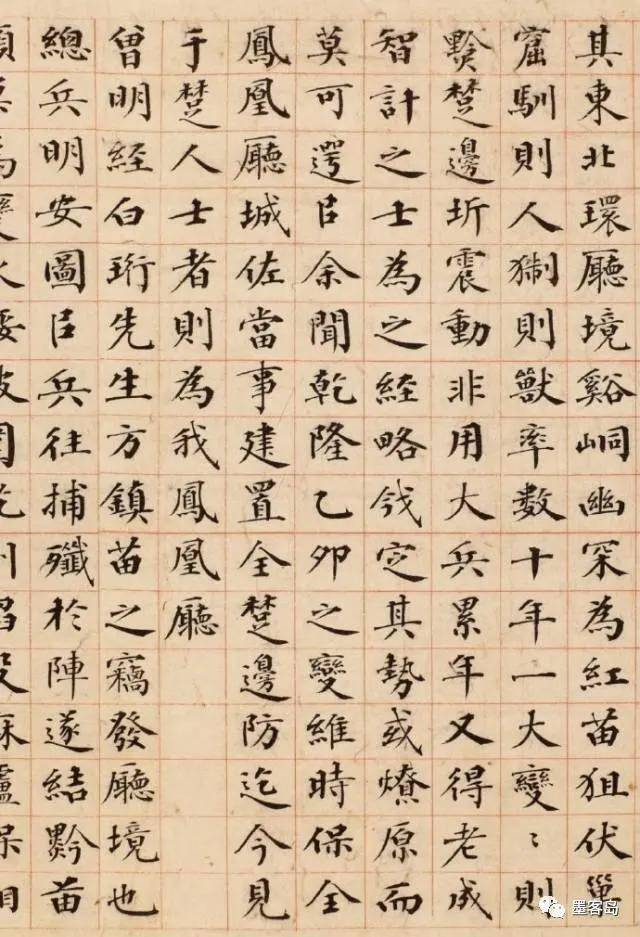 其東北環廳境谿峒幽罙為紅苗狙伏巢
窟馴則人猘則獸率數十年一大變〻則
黔楚邊圻震動非用大兵累年又得老成
智計之士為之經略定其勢或燎原而
莫可遌㠯余聞乾隆乙卯之變維時保全
鳳凰廳城佐當事建置全楚邊防迄今見
于楚人士者則為我鳳凰廳
曾明經白珩先生方鎮苗之竊發廳境也
總兵明安圖㠯兵往捕殲於陣遂結黔苗
墨客岛